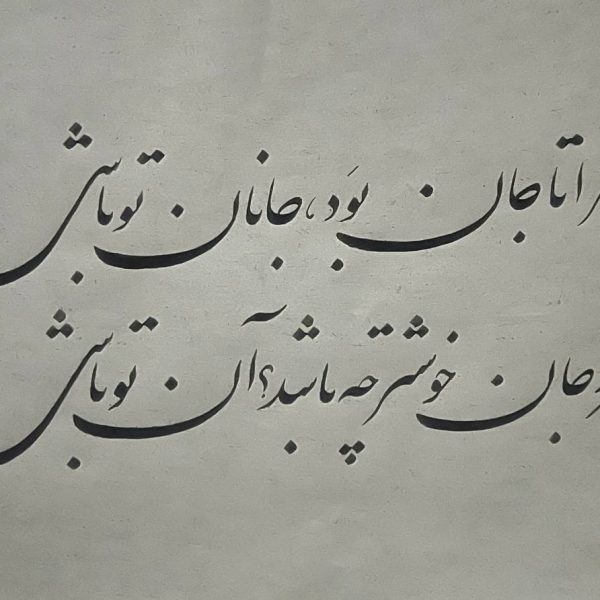 مرا تا جان بُوَد، جانان تو باشی
ز جان خوشتر چه باشد؟ آن تو باشی